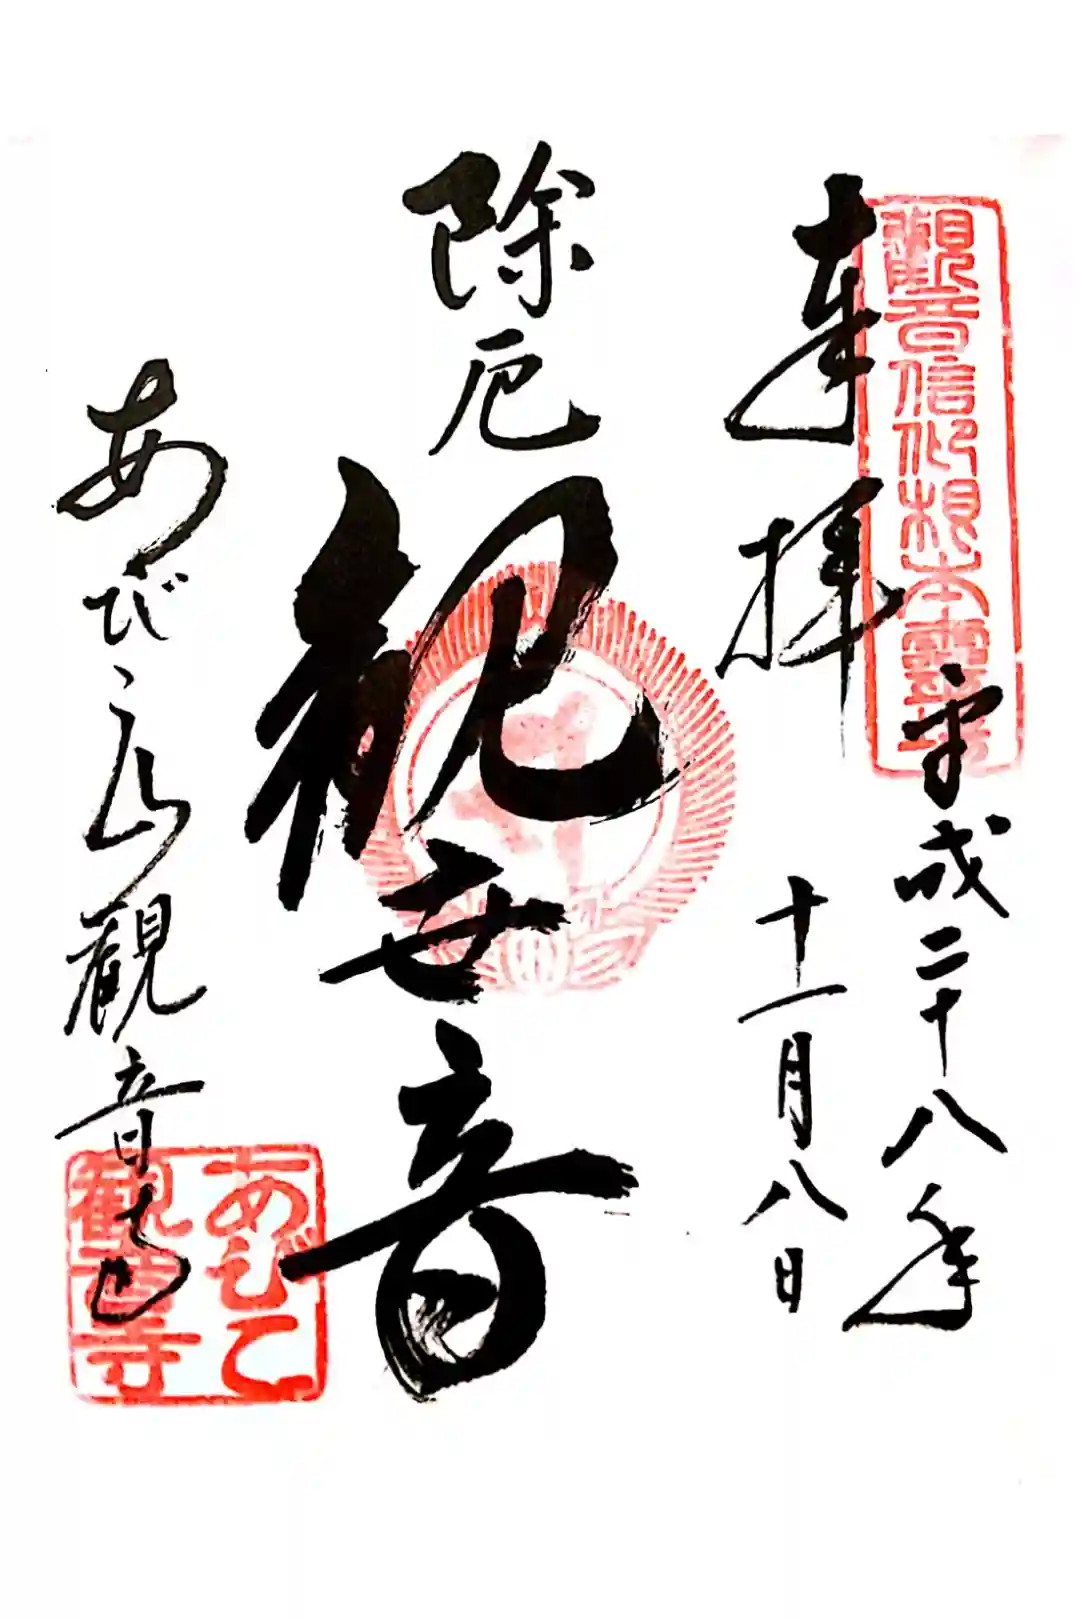 觀音信仰根本靈場
奉拝
平成二十八年
十一月八日
除厄
観世音
あびこ山観音寺
あびこ
観音寺